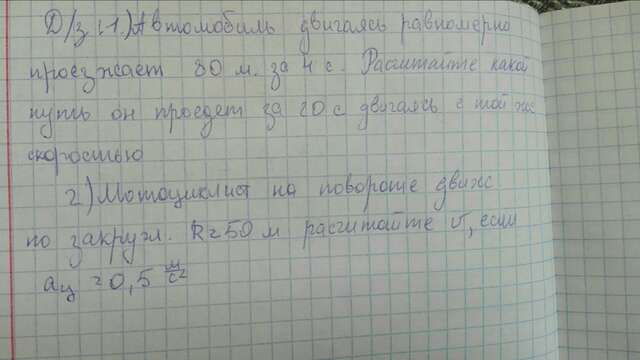 Д/з: 1.) Автомобиль двигаясь равномерно
проезжает 80 м. за 4 с. Расчитайте какой
путь он проедет за 20 с двигаясь с той же
скоростью
2) Мотоциклист на повороте движ
по закругл. R=50 м расчитайте v, если
aц = 0,5 м/с²